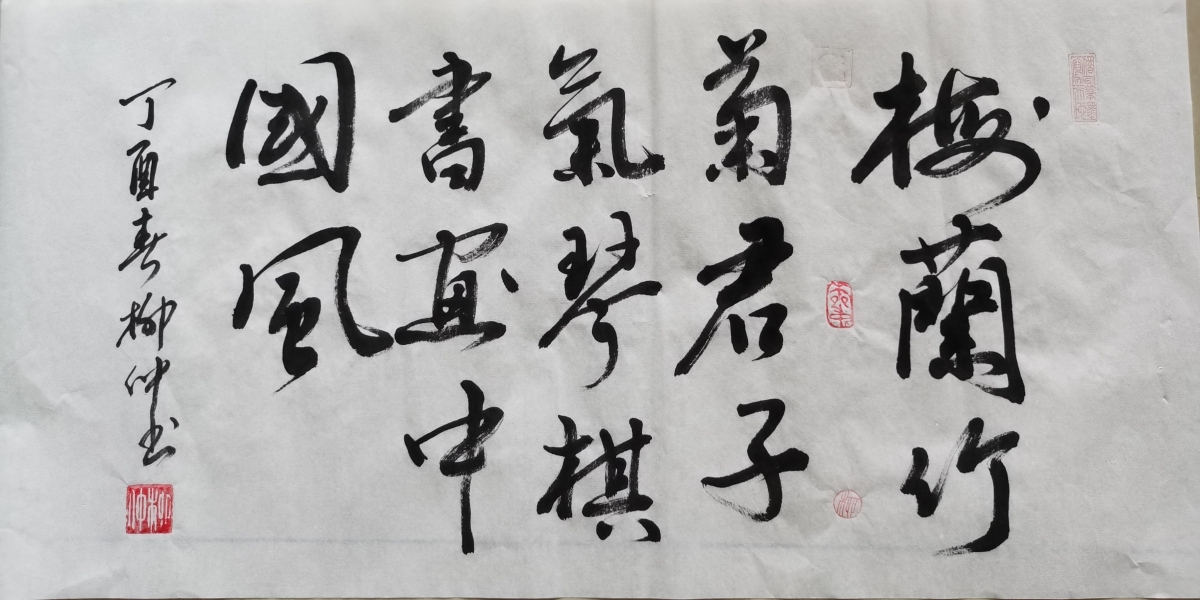 梅蘭竹
菊君子
氣琴棋
書畫中
國風
丁酉春柳仲书
柳仲